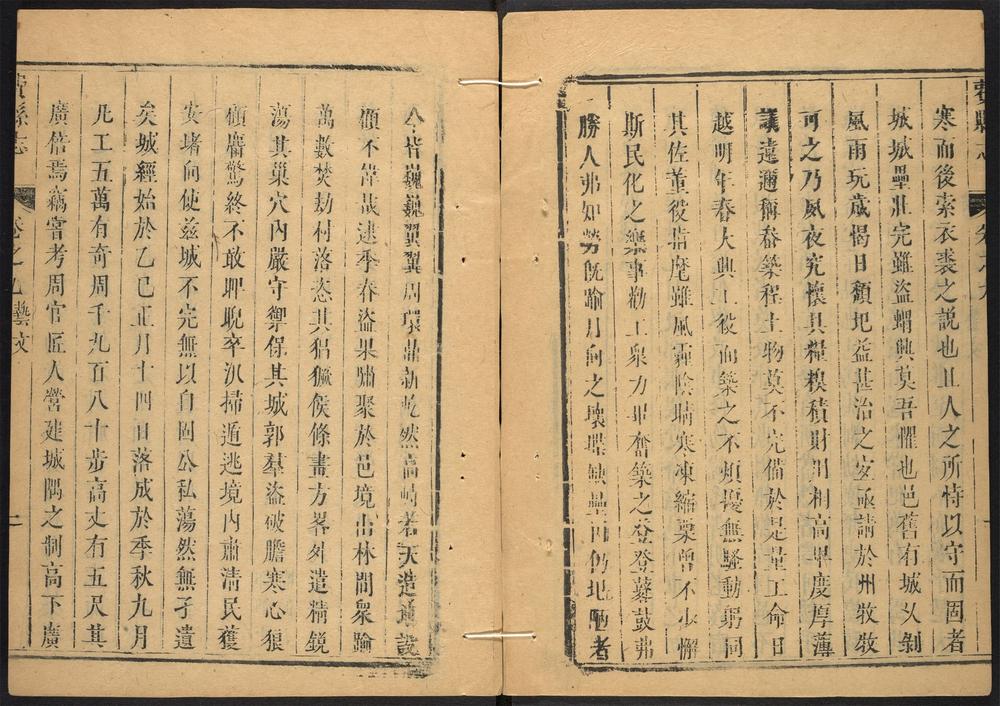 費縣志
寒而後索衣裘之説也且人之所恃以守而固者
城城壘壯完雖盜蝟興莫吾懼也邑舊有城久剝
風雨玩歲愒日頹圯益甚治之安亟請於州牧牧
可之乃夙夜究懷具糧糗積財用相高畢度厚薄
議遠邇稱畚築程土物莫不完備於是量工命日
越明年春大興工役而築之不煩擾無騷動躬同
其佐董役指麾雖風霾陰晴寒凍縮栗曾不少懈
斯民化之樂事勸工衆力畢奮築之登登鼛鼓弗
勝人弗知勞旣踰月向之壞堞缺壘
今皆巍巍翼翼周環鼎新屹然高峙若天造
顧不偉哉逮季春盜果嘯聚於邑境出林間衆踰
萬數焚劫村落恣其猖獗侯條畫方畧外遣精鏡
蕩其巢穴內嚴守禦保其城郭羣盜破膽寒心狼
顧麕驚終不敢睥睨卒汛掃遁逃境內肅清民獲
安堵向使兹城不完無以自固公私蕩然無孑遺
矣城經始於乙巳正月十四日落成於季秋九月
凡工五萬有奇周千九百八十步高丈有五尺其
廣倍焉竊嘗考周官匠人營建城隅之制高下廣
費縣志 卷之九 藝文 二